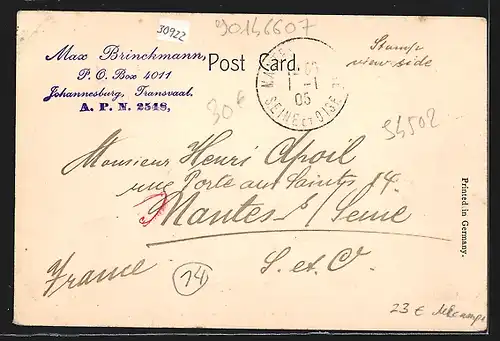 30922
90146607
Max Brinchmann,
P. O. Box 4011
Johannesburg, Transvaal.
A. P. N. 2548,
Post Card.
Stamp
view side
1-1
05
SEINE ET OISE
30 €
34502
Monsieur Henri
rue Porte aux Saints 14.
Mantes s/ Seine
S. et O.
France
14
Printed in Germany.
23 €